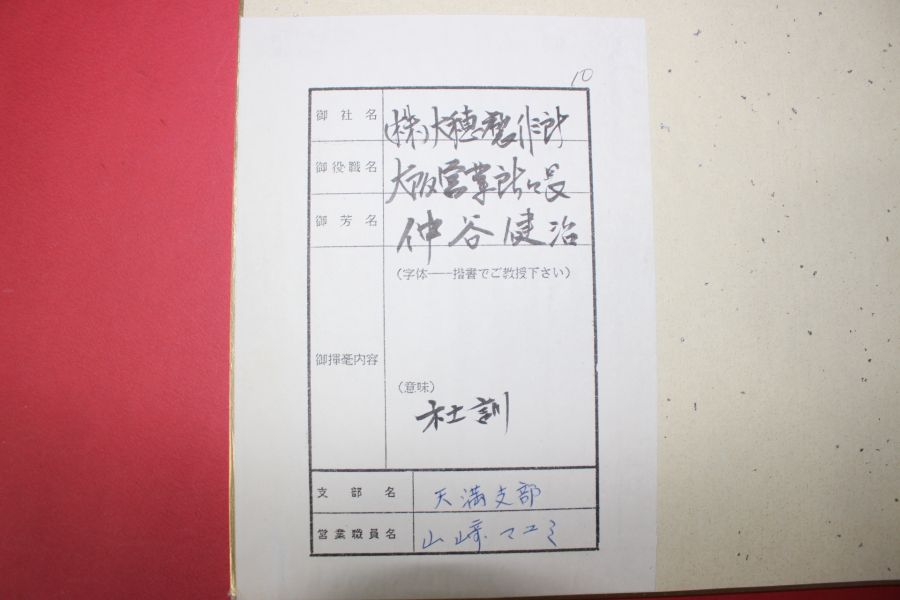 10
御社名 (株)大穂製作所
御役職名 大阪営業所長
御芳名 仲谷健治
(字体——措書でご教授下さい)
御揮毫内容
(意味)
社訓
支部名 天満支部
営業職員名 山崎マユミ